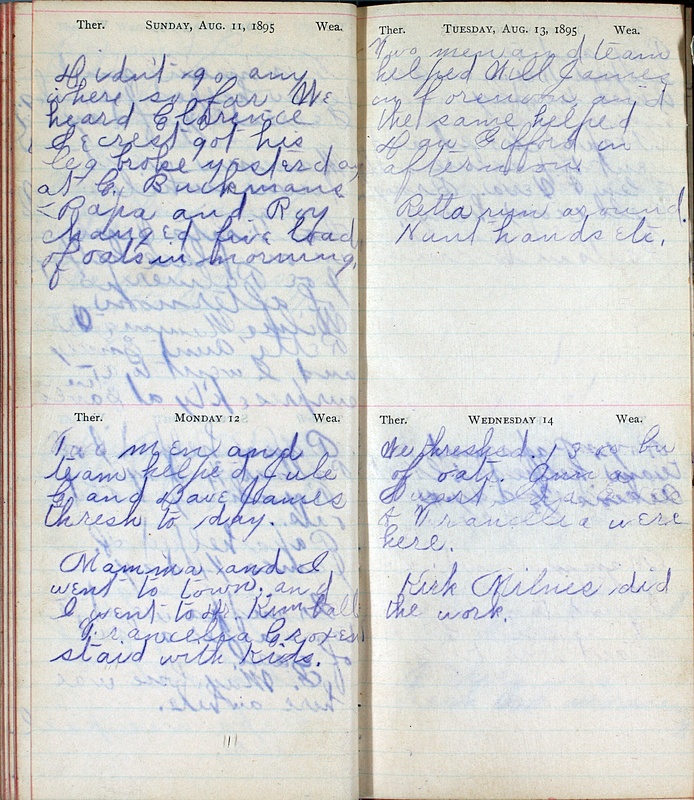 Ther. SUNDAY, AUG. 11, 1895 Wea.
Didn't go any
where so far We
heard Clarence
Secrest got his
leg broke yesterday
at C. Buckmans
Papa and Roy
changed five load
of oats in morning.
Ther. MONDAY 12 Wea.
Two men and
team helped Jule
G. and Dave James
thresh to day.
Mamma and I
went to town. and
I went to Kimball
Francelia Groxen
staid with Kids.
Ther. TUESDAY, AUG. 13, 1895 Wea.
Two men and team
helped Will James
in forenoon and
the same helped
Dan Gifford in
afternoon.
Retta run around.
Hunt hands etc.
Ther. WEDNESDAY 14 Wea.
We threshed. bu
of oats.
Stuart
& Francelia were
here.
Kirk Milnes did
the work.